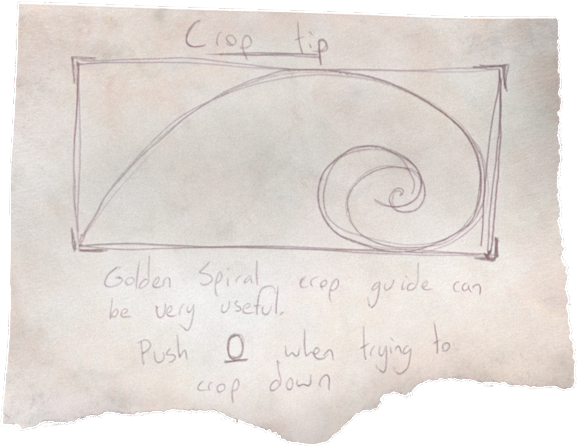 Crop tip
Golden Spiral crop guide can
be very useful.
Push O when trying to
crop down